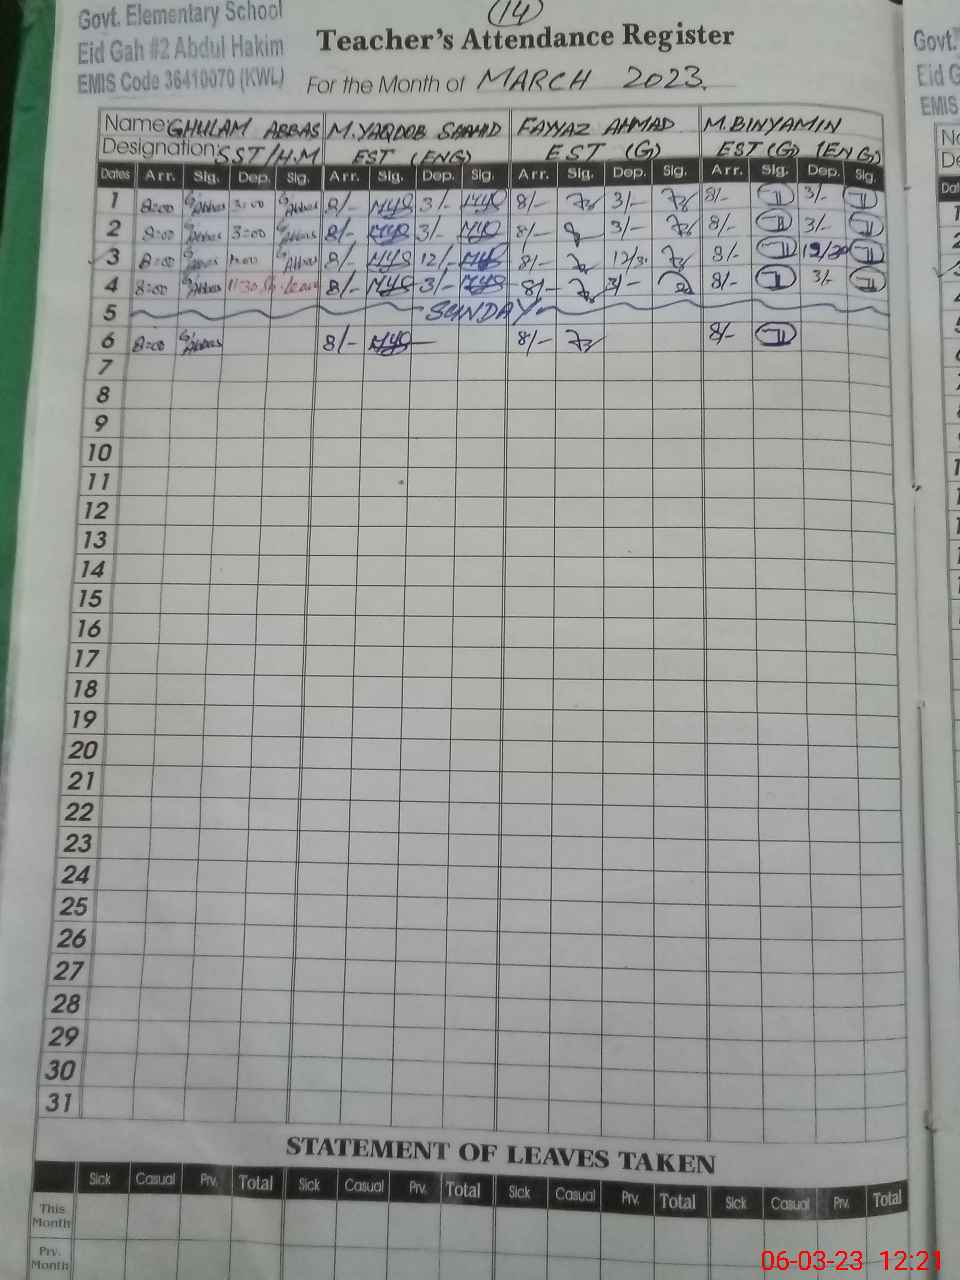 (14)
Govt. Elementary School
Eid Gah #2 Abdul Hakim
EMIS Code 36410070 (KWL)
Teacher's Attendance Register
For the Month of MARCH 2023.
Name: GHULAM ABBAS M. YAQOOB SHAHID FAYYAZ AHMAD M. BINYAMIN
Designation: SST/H.M EST (ENG) EST (G) EST (G) (ENG)
Dates Arr. Sig. Dep. Sig. Arr. Sig. Dep. Sig. Arr. Sig. Dep. Sig. Arr. Sig. Dep. Sig.
1 8=00 G.Abbas 3=00 G.Abbas 8/- MYS 3/- MYS 8/- 3/- 8/- 3/-
2 8=00 G.Abbas 3=00 G.Abbas 8/- MYS 3/- MYS 8/- 3/- 8/- 3/-
3 8=00 G.Abbas G.Abbas 8/- MYS 12/- MYS 8/- 12/30 8/- 12/30
4 8=00 G.Abbas 11:30 Leave 8/- MYS 3/- MYS 8/- 3/- 8/- 3/-
5 SUNDAY
6 8=00 G.Abbas 8/- MYS 8/- 8/-
7
8
9
10
11
12
13
14
15
16
17
18
19
20
21
22
23
24
25
26
27
28
29
30
31
STATEMENT OF LEAVES TAKEN
Sick Casual Prv. Total Sick Casual Prv. Total Sick Casual Prv. Total Sick Casual Prv. Total
This
Month
Prv.
Month
06-03-23 12:21
Govt.
Eid G
EMIS